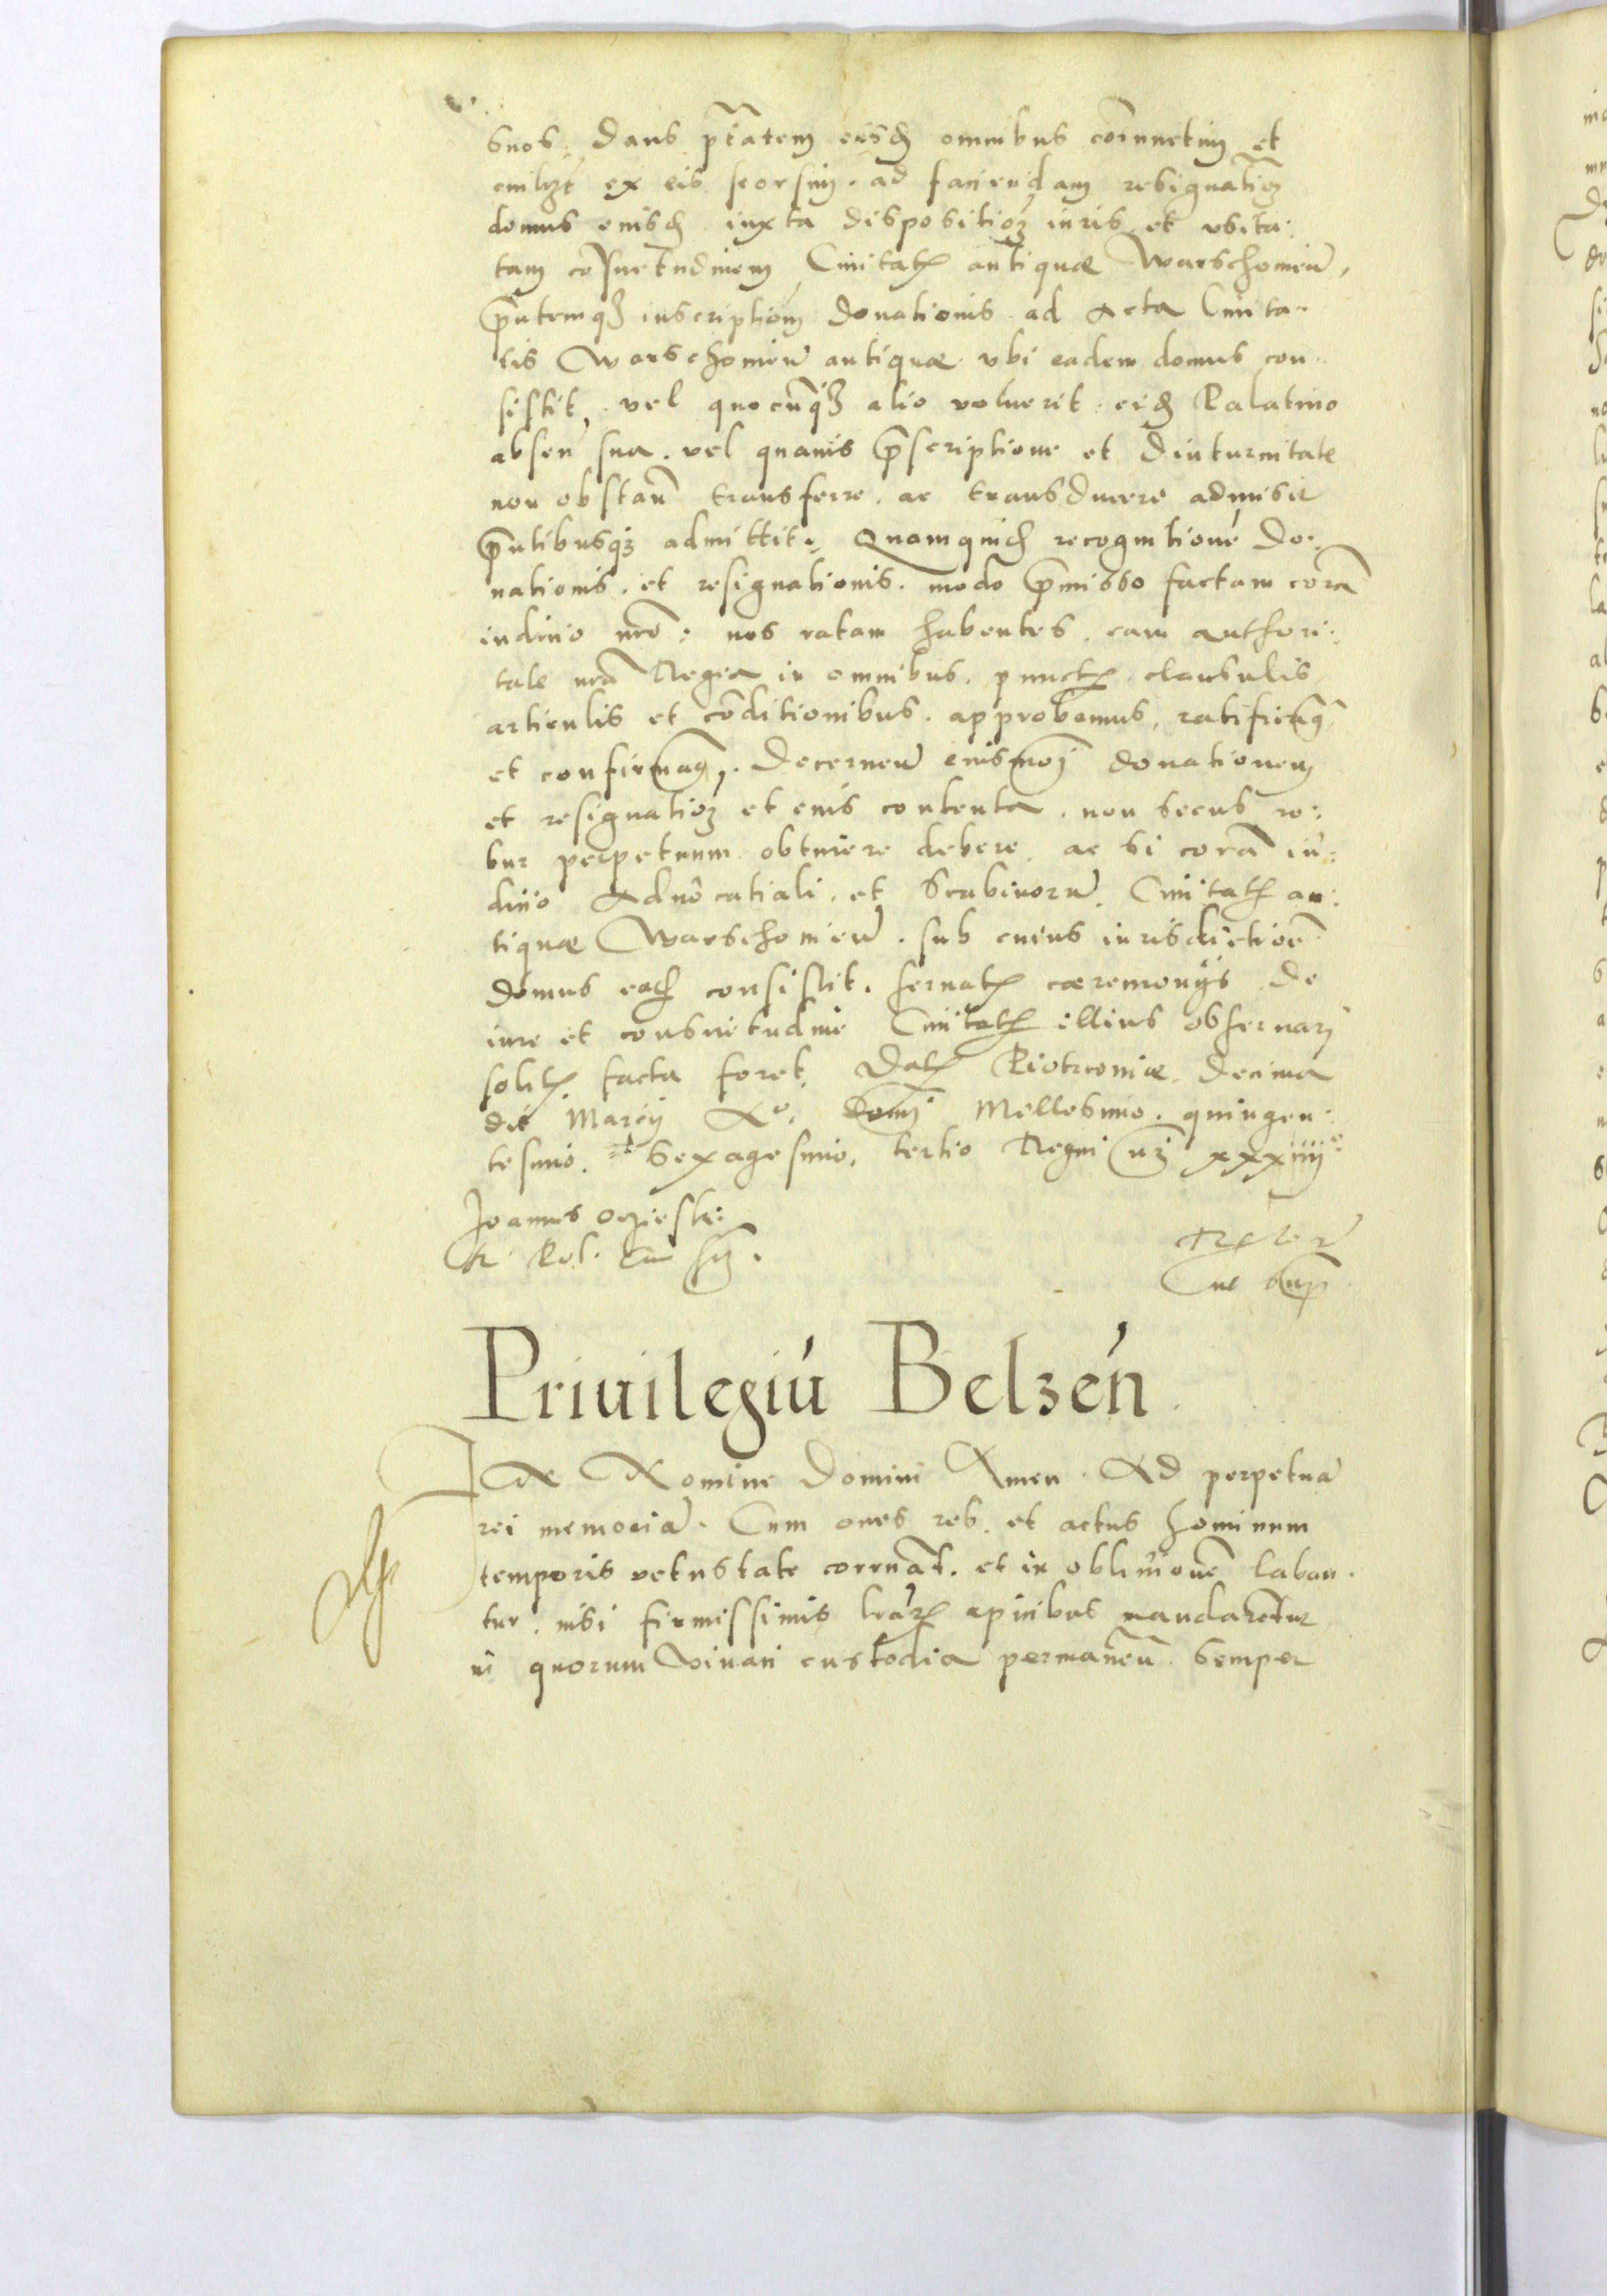 suos. Dans p̃tatem eisd̃ omnibus coniunctim et
cuilibet ex eis seorsim. ad faciendam resignatioẽ
domus eiusd̃ iuxta dispositioẽ iuris et vsita:
tam cõsuetudinem Ciuitatis antiquæ Warschouieñ,
p̃ntemq3 inscriptionẽ donationis ad Acta Ciuita.
tis Warschouieñ antiquæ vbi eadem domus con
sistit, vel quocũq3 alio voluerit: eid̃ Palatino
abseñ sua. vel quauis p̃scriptione et diuturnitate
non obstañ transferre. ac transducere admisit
p̃ntibusq3 admittit. Quamquid̃ recognitionẽ do:
nationis. et resignationis. modo p̃misso factam corã
iudicio nrõ: nos ratam habentes. eam authori:
tate nrã Regia in omnibus. punctis clausulis
articulis et cõditionibus. approbamus, ratificamq̃
et confirmam9. Decerneñ eiusmoi donationem
et resignatioẽ et eius contenta. non secus ro:
bur perpetuum obtinere debere. ac si corã iu:
dicio Aduocatiali. et Scabinorũ. Ciuitatis an:
tiquæ Warschouieñ. sub cuius iurisdictioẽ
domus ead̃ consistit. seruatis cæremonijs de
iure et consuetudine Ciuitatis illius obseruari
solitis facta foret. Datis Piotrcouiæ. decima
die Marcij Aº. Domi Millesimo. quingen:
tesimo. Sexagesimo, tertio Regni nri xxxiiijº.
Joannes oczieski:
R. Pol. Can
Priuilegiú Belzeń
IN Nomine Domini Amen. Ad perpetuã
rei memoriã. Cum oẽs res. et actus hominum
temporis vetustate corruãt. et in obliuionẽ laban.
tur. nisi firmissimis lrãrũ apicibus mandarẽtur
in quorum viuaci custodia permaneñ semper